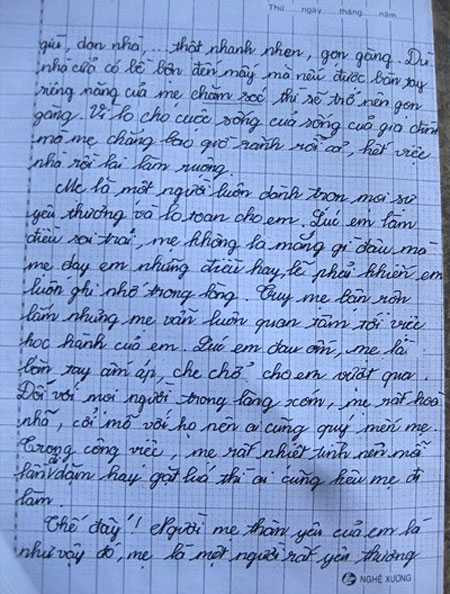 Thứ ngày tháng năm
giũ, dọn nhà,... thật nhanh nhẹn, gọn gàng. Dù
nhà cửa có bề bộn đến mấy mà nếu được bàn tay
riêng năng của mẹ chăm sóc thì sẽ trở nên gọn
gàng. Vì lo cho cuộc sống của sống của gia đình
mà mẹ chẳng bao giờ rảnh rỗi cả, hết việc
nhà rồi lại làm ruộng.
Mẹ là một người luôn dành trọn mọi sự
yêu thương và lo toan cho em. Lúc em làm
điều sai trái, mẹ không la mắng gì đâu mà
mẹ dạy em những điều hay lẽ phải khiến em
luôn ghi nhớ trong lòng. Tuy mẹ bận rộn
lắm nhưng mẹ vẫn luôn quan tâm tới việc
học hành của em. Lúc em đau ốm, mẹ là
bàn tay ấm áp, che chở cho em vượt qua.
Đối với mọi người trong làng xóm, mẹ rất hoà
nhã, cởi mở với họ nên ai cũng quý mến mẹ.
Trong công việc, mẹ rất nhiệt tình nên mỗi
lần dặm hay gặt luá thì ai cũng kêu mẹ đi
làm.
Thế đấy! Người mẹ thân yêu của em là
như vậy đó, mẹ là một người rất yêu thương
NGHỆ XƯƠNG